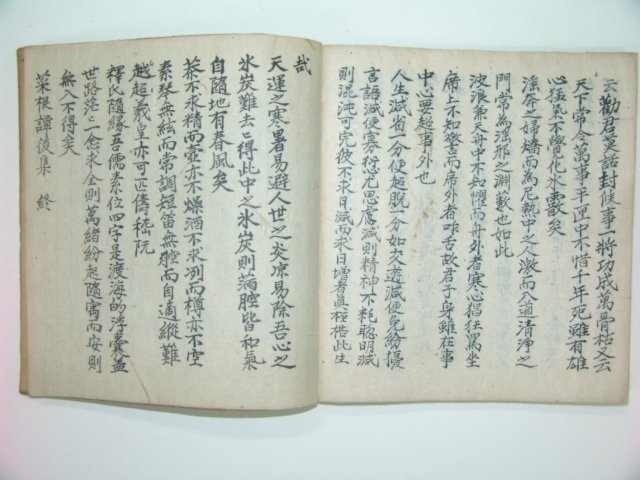 云勸君莫話封候事一將功成萬骨枯又云
天下常令萬事平匣中不惜千年死雖有雄
心猛氣不覺化氷霰矣
淫奔之婦矯而為尼熱中之人激而入道清淨之
門常為淫邪之淵藪也如此
波浪兼天舟中不知懼而舟外者寒心猖狂罵坐
席上不知警而席外者咋舌故君子身雖在事
中心要超事外也
人生減省一分便超脫一分如交遊減便免紛擾
言語減便寡愆尤思慮減則精神不耗聰明減
則混沌可完彼不求日減而求日增者眞桎梏此生
哉
天運之寒暑易避人世之炎凉易除吾心之
氷炭難去得此中之氷炭則滿腔皆和氣
自隨地有春風矣
茶不求精而壺亦不燥酒不求冽而樽亦不空
素琴無絃而常調短笛無腔而自適縱難
超越羲皇亦可匹儔嵇阮
釋氏隨緣吾儒素位四字是渡海的浮囊盖
世路茫茫一念求全則萬緖紛起隨寓而安則
無入不得矣
菜根譚後集 終